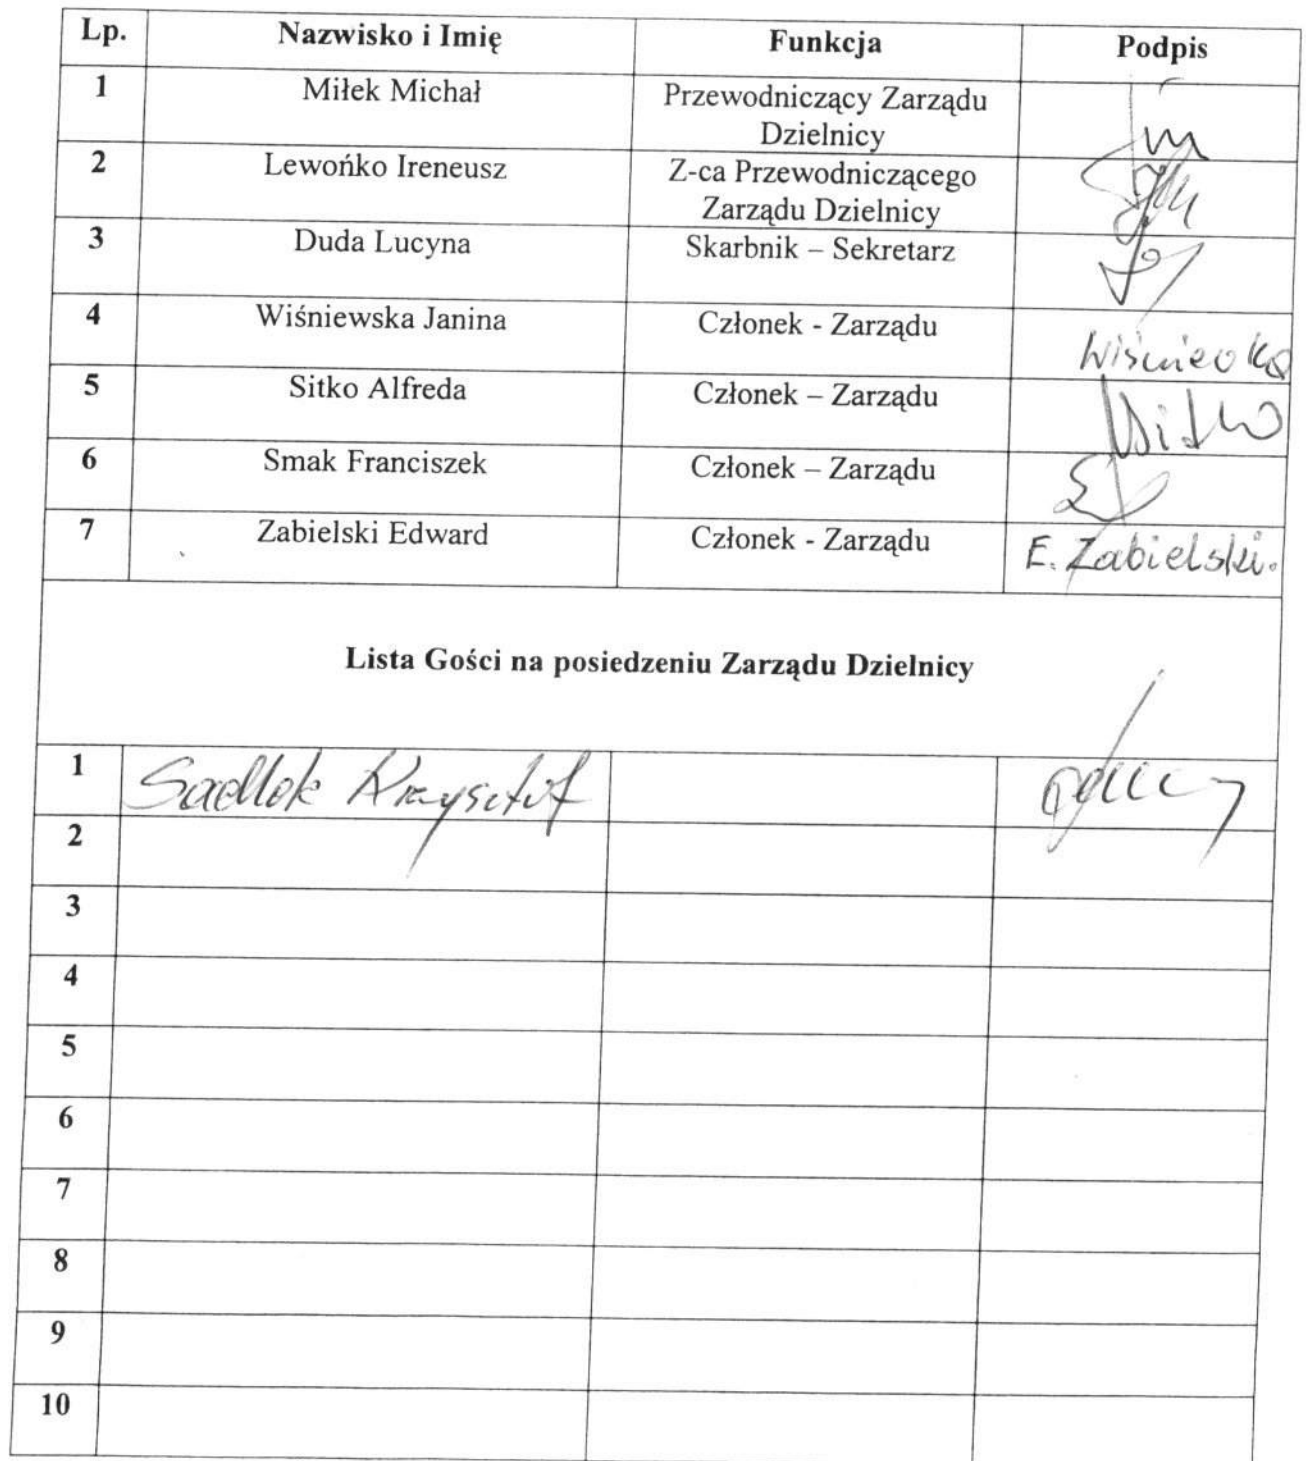 Lp. Nazwisko i Imię Funkcja Podpis
1 Miłek Michał Przewodniczący Zarządu
Dzielnicy
2 Lewońko Ireneusz Z-ca Przewodniczącego
Zarządu Dzielnicy
3 Duda Lucyna Skarbnik – Sekretarz
4 Wiśniewska Janina Członek - Zarządu
5 Sitko Alfreda Członek – Zarządu
6 Smak Franciszek Członek – Zarządu
7 Zabielski Edward Członek - Zarządu E. Zabielski.
Lista Gości na posiedzeniu Zarządu Dzielnicy
1 Sadlok Krzysztof
2
3
4
5
6
7
8
9
10